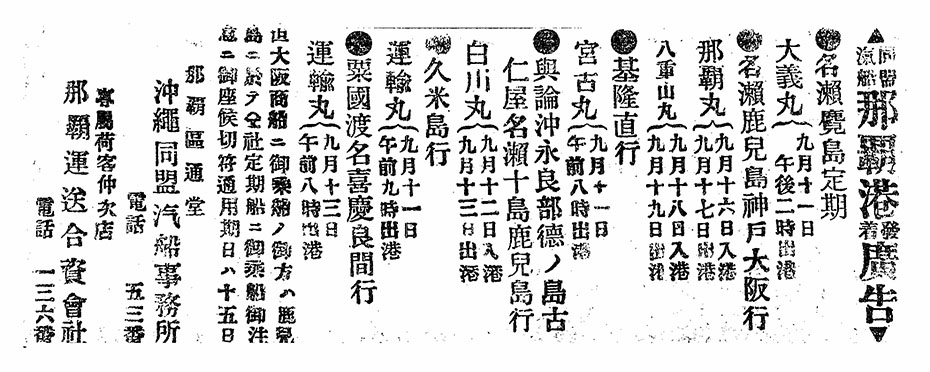 ▲同盟汽船那覇港發着廣告▼
●名瀨麑島定期
大義丸{九月十一日
午後二時出港
●名瀨鹿兒島神戶大阪行
那覇丸{九月十六日入港
九月十七日出港
八重山丸{九月十八日入港
九月十九日出港
●基隆直行
宮古丸{九月十一日
午前八時出港
●與論沖永良部德ノ島古
仁屋名瀨十島鹿兒島行
白川丸{九月十二日入港
九月十三日出港
●久米島行
運輸丸{九月十一日
午前九時出港
●粟國渡名喜慶良間行
運輸丸{九月十三日
午前八時出港
但大阪商船ニ御乘船ノ御方ハ鹿兒
島ニ於テ仝社定期船ニ御乘船御注
意ニ御座候切符通用期日ハ十五日
那覇區通堂
沖繩同盟汽船事務所
電話 五三番
專屬荷客仲次店
那覇運送合資會社
電話 一三六番